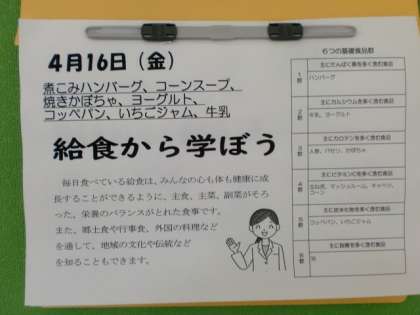 4月16日（金）
煮こみハンバーグ、コーンスープ、
焼きかぼちゃ、ヨーグルト、
コッペパン、いちごジャム、牛乳
給食から学ぼう
毎日食べている給食は、みんなの心も体も健康に成
長することができるように、主食、主菜、副菜がそろ
った、栄養のバランスがとれた食事です。
また、郷土食や行事食、外国の料理など
を通して、地域の文化や伝統など
を知ることもできます。
６つの基礎食品群
1群
主にたんぱく質を多く含む食品
ハンバーグ
2群
主にカルシウムを多く含む食品
牛乳、ヨーグルト
3群
主にカロテンを多く含む食品
人参、パセリ、かぼちゃ
4群
主にビタミンCを多く含む食品
玉ねぎ、マッシュルーム、キャベツ、
コーン
5群
主に炭水化物を多く含む食品
コッペパン、いちごジャム
6群
主に脂質を多く含む食品
油